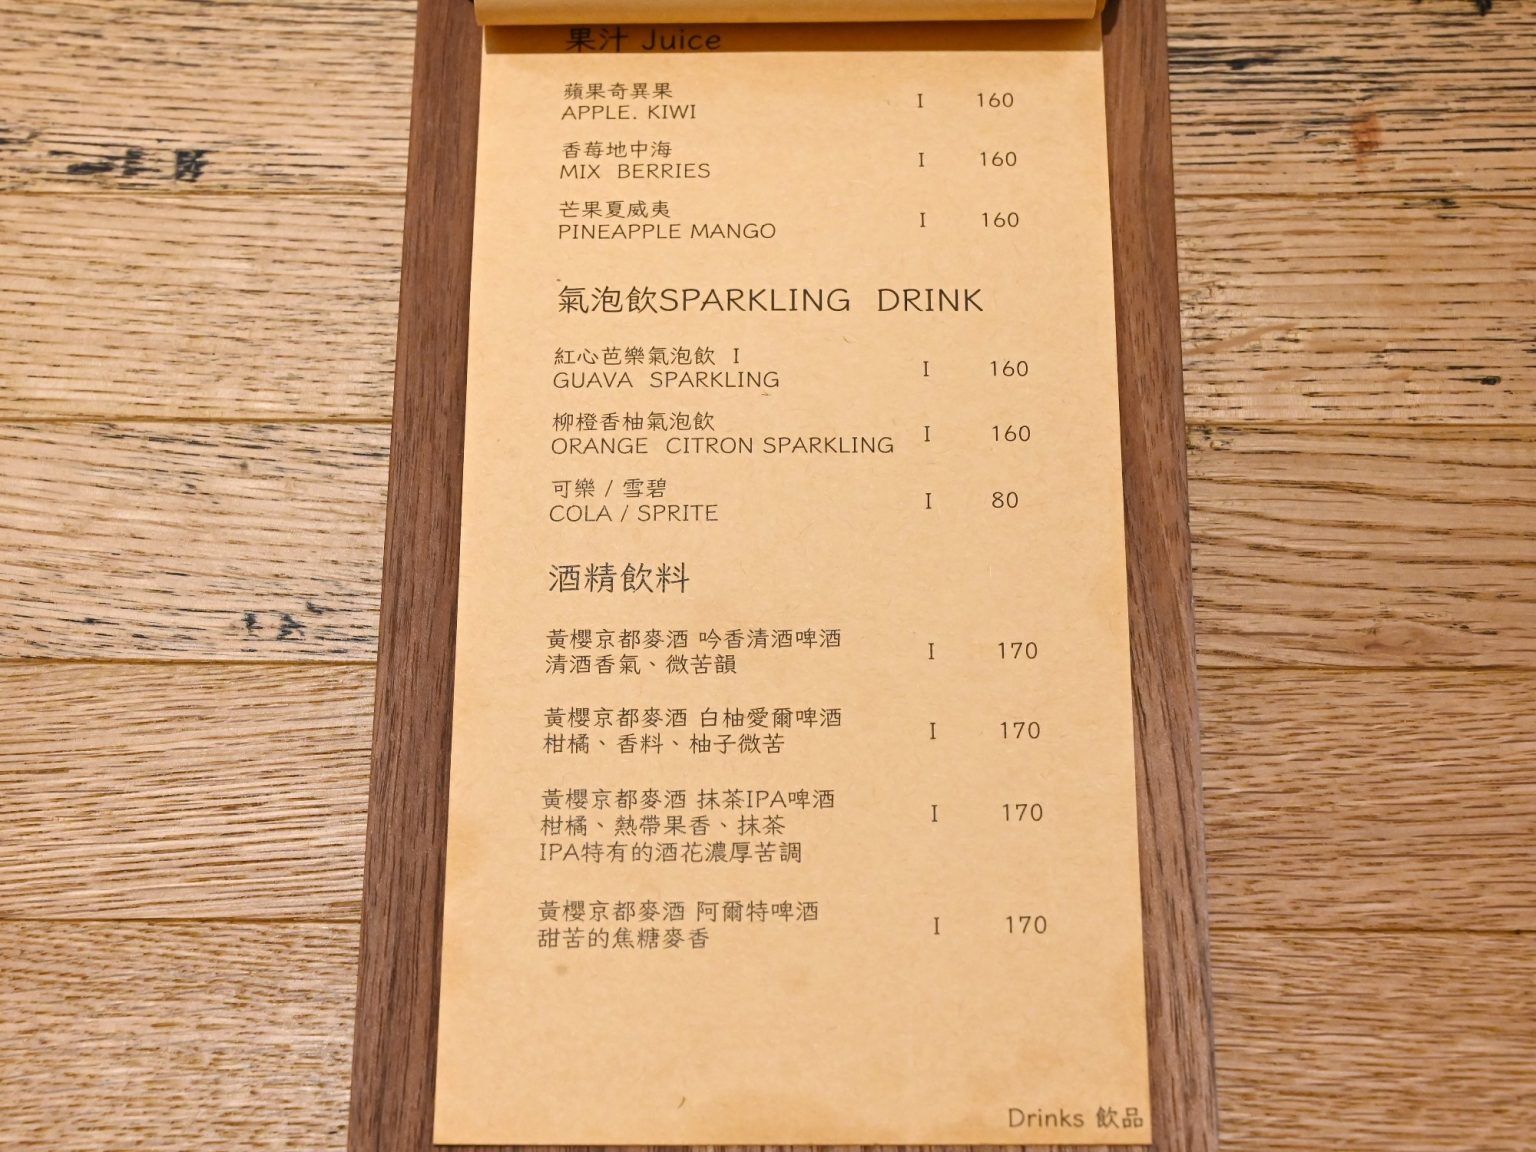 果汁 Juice
蘋果奇異果
APPLE. KIWI I 160
香莓地中海
MIX BERRIES I 160
芒果夏威夷
PINEAPPLE MANGO I 160
氣泡飲SPARKLING DRINK
紅心芭樂氣泡飲 I
GUAVA SPARKLING I 160
柳橙香柚氣泡飲
ORANGE CITRON SPARKLING I 160
可樂 / 雪碧
COLA / SPRITE I 80
酒精飲料
黃櫻京都麥酒 吟香清酒啤酒
清酒香氣、微苦韻 I 170
黃櫻京都麥酒 白柚愛爾啤酒
柑橘、香料、柚子微苦 I 170
黃櫻京都麥酒 抹茶IPA啤酒
柑橘、熱帶果香、抹茶 I 170
IPA特有的酒花濃厚苦調
黃櫻京都麥酒 阿爾特啤酒
甜苦的焦糖麥香 I 170
Drinks 飲品